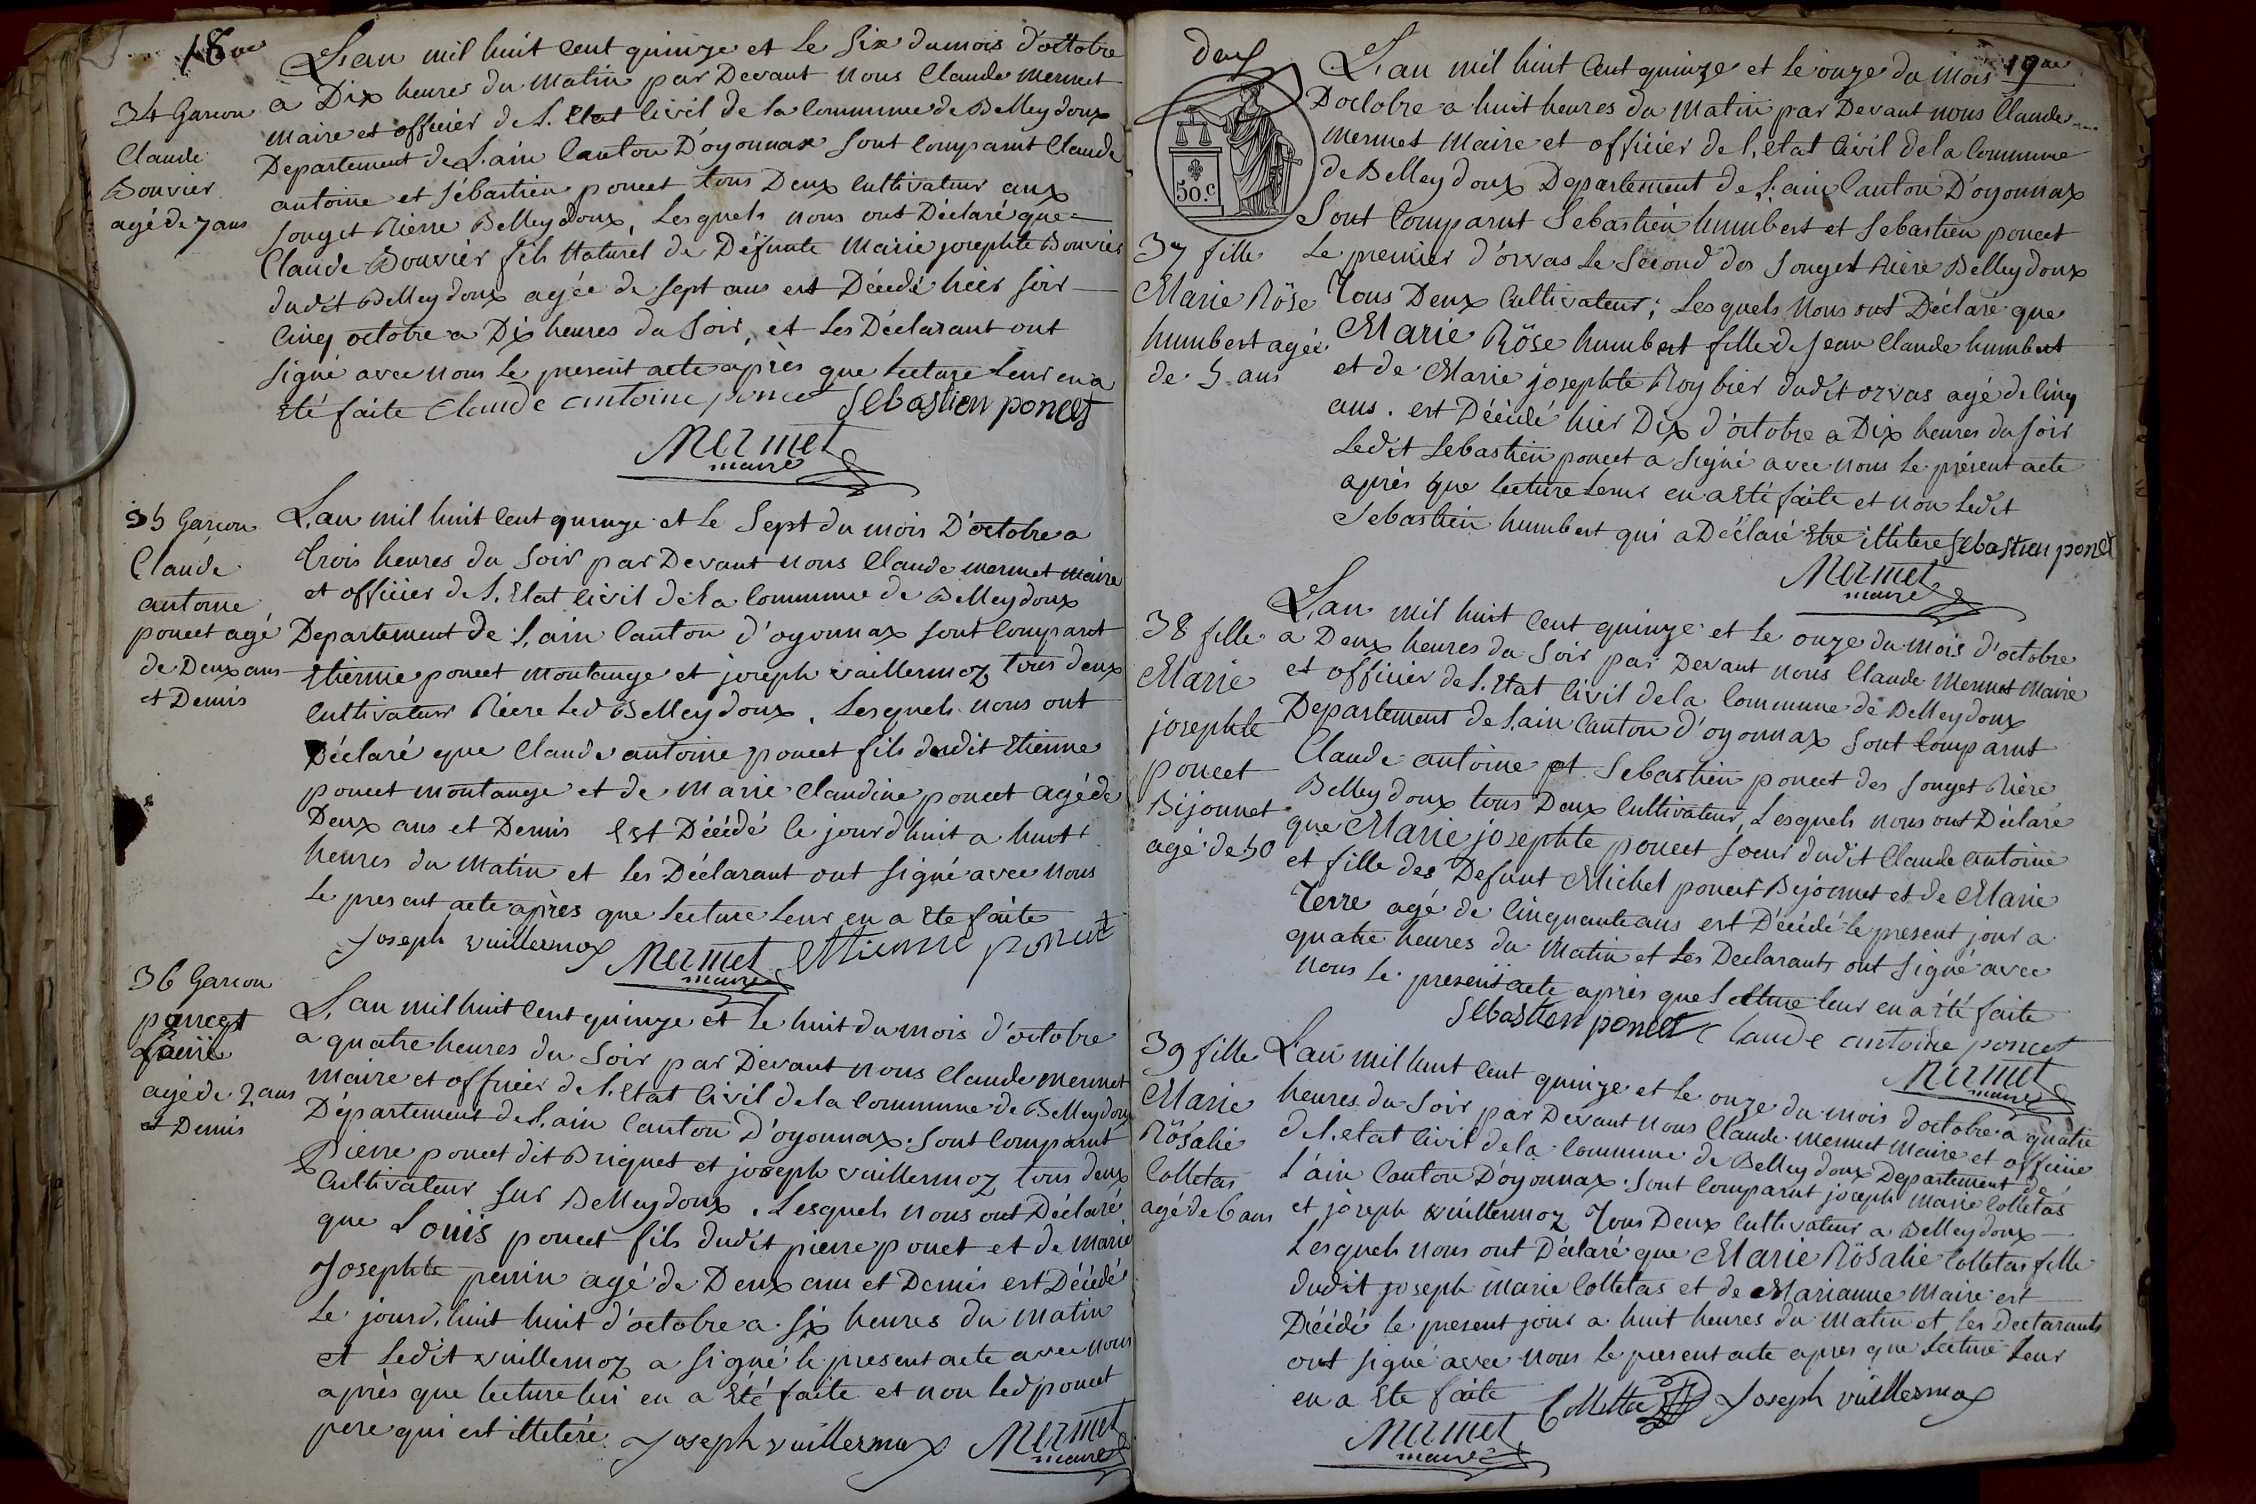 18me
34 Garcon
Claude
Bouvier
agé de 7 ans
L'an mil huit Cent quinze et Le Six du mois d'octobre
a Dix heures du Matin par Devant nous Claude mermet
maire et officier de l'Etat Civil de la Commune de Belleydoux
Departement de L'ain Canton D'oyonnax sont Comparut Claude
antoine et sébastien poncet tous Deux Cultivateur aux
souget Rierre Belleydoux, Lesquels nous ont Déclaré que
Claude Bouvier fils Naturel de Défunte Marie josephte Bouvier
dudit Belleydoux agée de sept ans est Décédé hier soir
Cinq octobre a Dix heures du Soir, et Les Déclarant ont
signé avec nous Le present acte après que Lecture Leur en a
Eté faite Claude antoine poncet Sébastien poncet
Mermet
maire
35 Garcon
Claude
antoine
poncet agé
de Deux ans
et Demis
L'an mil huit Cent quinze et Le Sept du mois D'octobre a
Trois heures du Soir par Devant nous Claude mermet maire
et officier de l'Etat Civil de La Commune de Belleydoux
Departement de L'ain Canton d'oyonnax sont Comparut
Etienne poncet montange et joseph vuillermoz tous deux
Cultivateur Riere Led Belleydoux, Lesquels nous ont
Déclaré que Claude antoine poncet fils dudit Etienne
poncet montange et de Marie Claudine poncet agé de
Deux ans et Demis Est Décédé le jourdhuit a huit
heures du Matin et Les Déclarant ont signé avec nous
Le present acte après que Lecture Leur en a Ete faite
Joseph vuillermoz Mermet Etienne poncet
maire
36 Garcon
poncet
agé de 2 ans
et Demis
L'an mil huit Cent quinze et Le huit du mois d'octobre
a quatre heures du Soir par Devant nous Claude mermet
maire et officier de L'Etat Civil de la Commune de Belleydoux
Département de L'ain Canton D'oyonnax. sont Comparut
Pierre poncet dit Briquet et joseph vuillermoz tous deux
Cultivateur sur Belleydoux, Lesquels nous ont Déclaré
que Louis poncet fils dudit pierre poncet et de marie
Josephte perrin agé de Deux ans et Demis est Décédé
Le jourd'huit huit d'octobre a six heures du matin
et Ledit vuillermoz a signé le present acte avec nous
après que lecture lui en a Eté faite et non Led poncet
pere qui est illeteré. Joseph vuillermoz Mermet
maire
19me
50.C
37 fille
Marie Röse
humbert agée
de 5 ans
L'an mil huit Cent quinze et Le onze du mois
D'octobre a huit heures du Matin par Devant nous Claude
mermet Maire et officier de l'etat Civil de la Commune
de Belleydoux Departement de L'ain Canton D'oyonnax
Sont Comparut Sebastien humbert et sebastien poncet
Le premier d'orvas Le Second des souget Riere Belleydoux
Tous Deux Cultivateur; Lesquels Nous ont Déclaré que
Marie Röse humbert fille de Jean Claude humbert
et de Marie josephte Roybier dudit orvas agé de Cinq
ans. est Décédé hier Dix d'octobre a Dix heures du Soir
Ledit Sebastien poncet a signé avec nous Le présent acte
après que Lecture Leur en a Eté faite et non Ledit
Sebastien humbert qui a Déclaré Etre illetere Sebastien poncet
Mermet
maire
38 fille
Marie
josephte
poncet
Bijonnet
agé de 50
L'an mil huit Cent quinze et Le onze du mois d'octobre
a Deux heures du Soir par Devant nous Claude Mermet Maire
et officier de l'Etat Civil de la Commune de Belleydoux
Departement de L'ain Canton d'oyonnax Sont Comparut
Claude antoine et Sebastien poncet des souget Rière
Belleydoux tous Deux Cultivateur, Lesquels nous ont Déclaré
que Marie josephte poncet soeur dudit Claude antoine
et fille des Defunt Michel poncet Bijonnet et de Marie
Terre agé de Cinquante ans est Décédé Le present jour a
quatre heures du Matin et Les Declarants ont signé avec
nous Le present acte après que Lecture leur en a été faite
Sébastien poncet Claude antoine poncet
Mermet
maire
39 fille
Marie
Rösalie
Colletas
agé de 6 ans
L'an mil huit Cent quinze et Le onze du mois d'octobre a quatre
heures du Soir par Devant nous Claude Mermet Maire et officier
de l'etat Civil de la Commune de Belleydoux Departement de
L'ain Canton D'oyonnax. sont Comparut joseph Marie Colletas
et joseph vuillermoz Tous Deux Cultivateur a Belleydoux
Lesquels nous ont Déclaré que Marie Rösalie Colletas fille
dudit joseph Marie Colletas et de Marianne Maire est
Décédé le present jour a huit heures du Matin et les Declarants
ont signé avec nous Le present acte apres que Lecture Leur
en a Ete faite Colletta Joseph vuillermoz
Mermet
maire